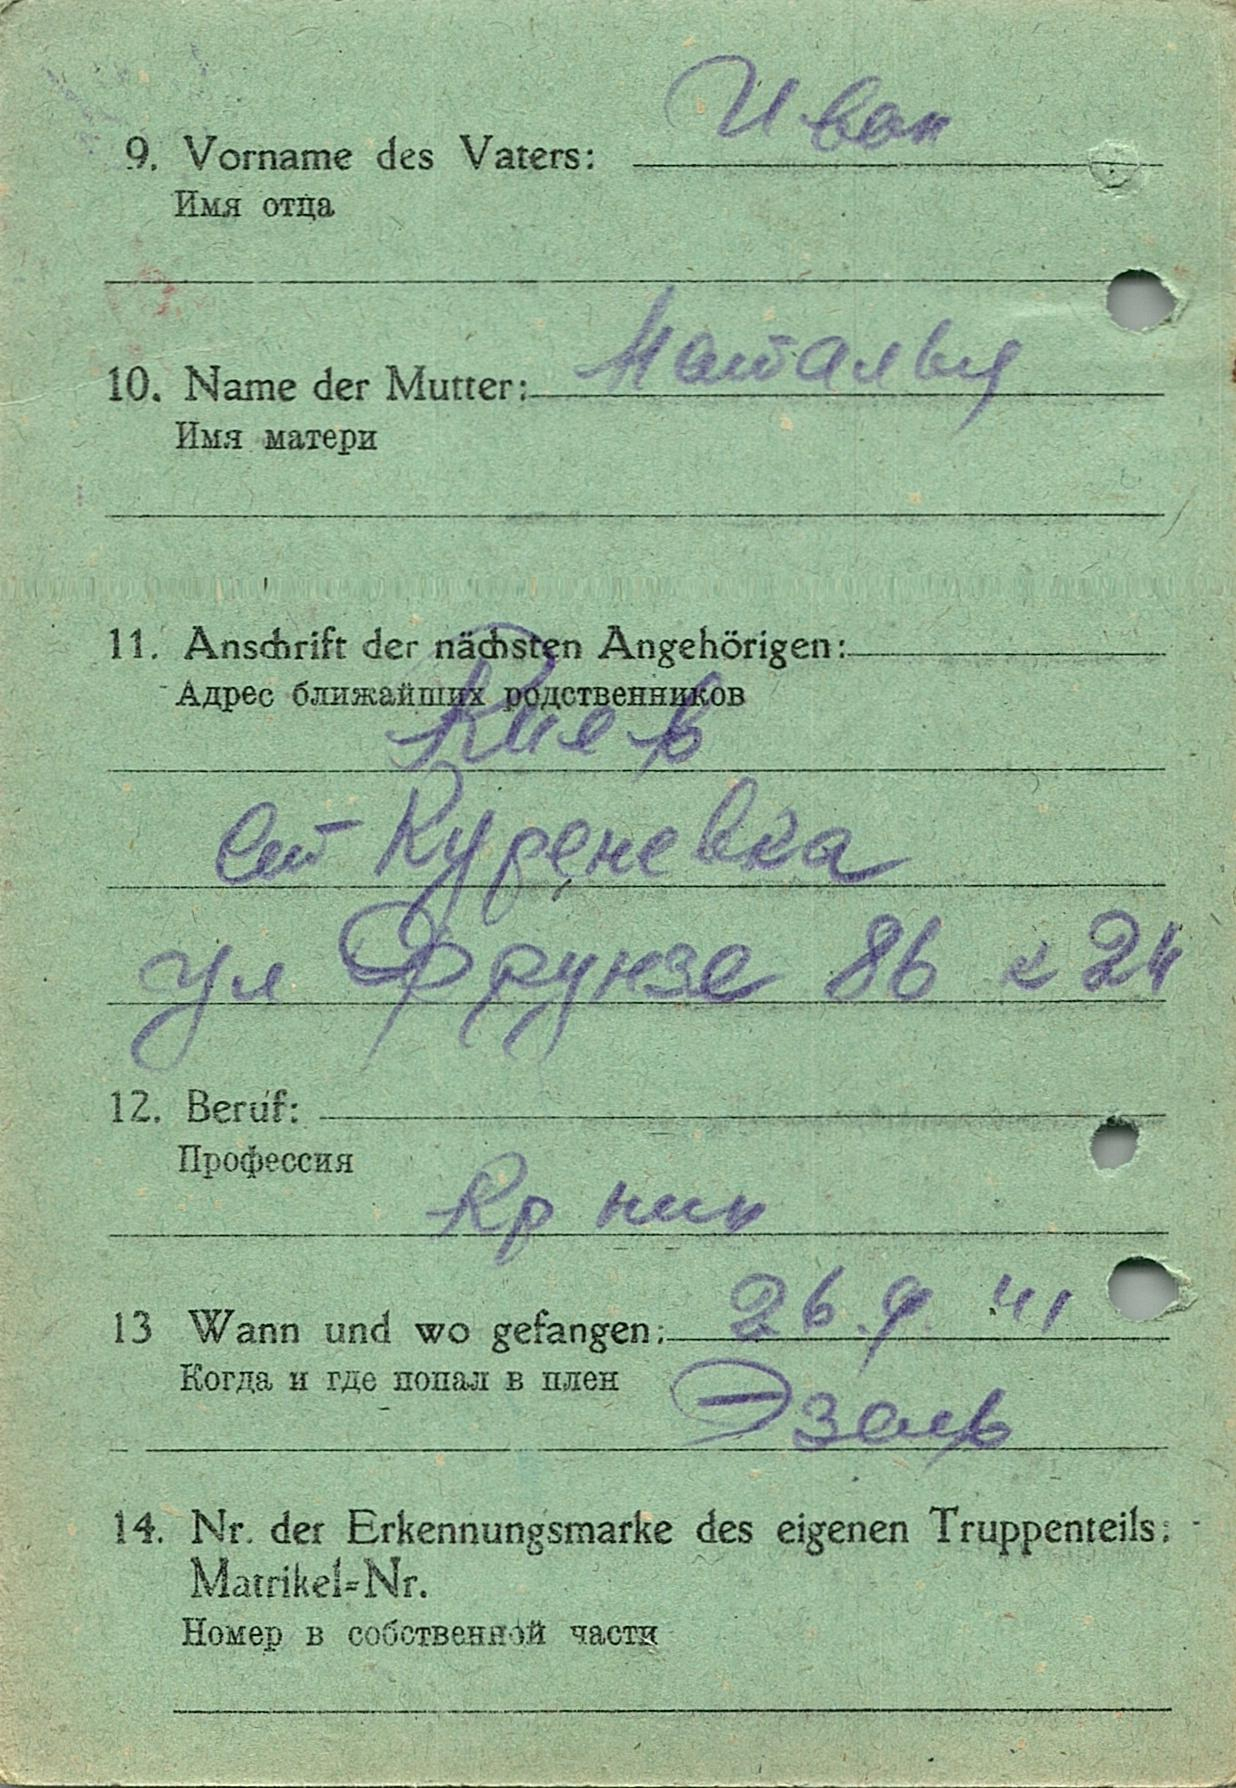 9. Vorname des Vaters: Иван
Имя отца
10. Name der Mutter: Наталья
Имя матери
11. Anschrift der nächsten Angehörigen:
Адрес ближайших родственников
Киев
ст Куреневка
ул Фрунзе 86 к 24
12. Beruf:
Профессия
Кр ник
13 Wann und wo gefangen: 26.9. 41
Когда и где попал в плен
Эзель
14. Nr. der Erkennungsmarke des eigenen Truppenteils:
Matrikel=Nr.
Номер в собственной части